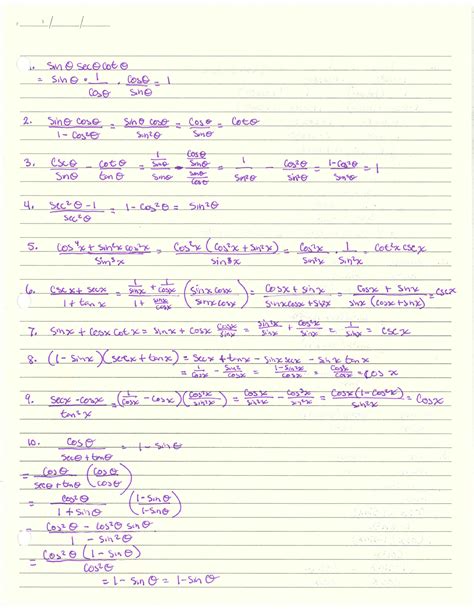 1. Sinθ secθ cotθ
= Sinθ · 1/Cosθ · Cosθ/Sinθ = 1
2. Sinθ Cosθ/1 - Cos²θ = Sinθ Cosθ/Sin²θ = Cosθ/Sinθ = Cotθ
3. Cscθ/Sinθ - Cotθ/tanθ = 1/Sinθ/Sinθ - Cosθ/Sinθ/Sinθ/Cosθ = 1/Sin²θ - Cos²θ/Sin²θ = 1-Cos²θ/Sin²θ = 1
4. Sec²θ - 1/Sec²θ = 1 - Cos²θ = Sin²θ
5. Cos⁴x + Sin²x Cos²x/Sin³x = Cos²x (Cos²x + Sin²x)/Sin³x = Cos²x/Sin²x · 1/Sin²x = Cot²x csc x
6. Cscx + Secx/1 + tan x = 1/Sinx + 1/Cosx/1 + Sinx/Cosx (Sinx Cosx/Sinx Cosx) = Cosx + Sinx/Sinx Cosx + Sin²x = Cosx + Sinx/Sinx (Cosx + Sinx) = Cscx
7. Sinx + Cosx Cot x = Sinx + Cosx Cosx/Sinx = Sin²x/Sinx + Cos²x/Sinx = 1/Sinx = Csc x
8. (1 - Sinx)(Secx + tanx) = Secx + tanx - Sinx secx - Sinx tan x
= 1/Cosx - Sin²/Cosx = 1-Sin²x/Cosx = Cos²x/Cosx = Cos x
9. Secx - Cosx/tan²x = (1/Cosx - Cosx)(Cos²x/Sin²x) = Cosx/Sin²x - Cos³x/Sin²x = Cosx(1-Cos²x)/Sin²x = Cosx
10. Cosθ/Secθ + tanθ = 1 - Sinθ
= Cosθ/Secθ + tanθ (Cosθ/Cosθ)
= Cos²θ/1 + Sinθ (1-Sinθ/1-Sinθ)
= Cos²θ - Cos²θ Sinθ/1 - Sin²θ
= Cos²θ (1 - Sinθ)/Cos²θ
= 1 - Sinθ = 1 - Sinθ